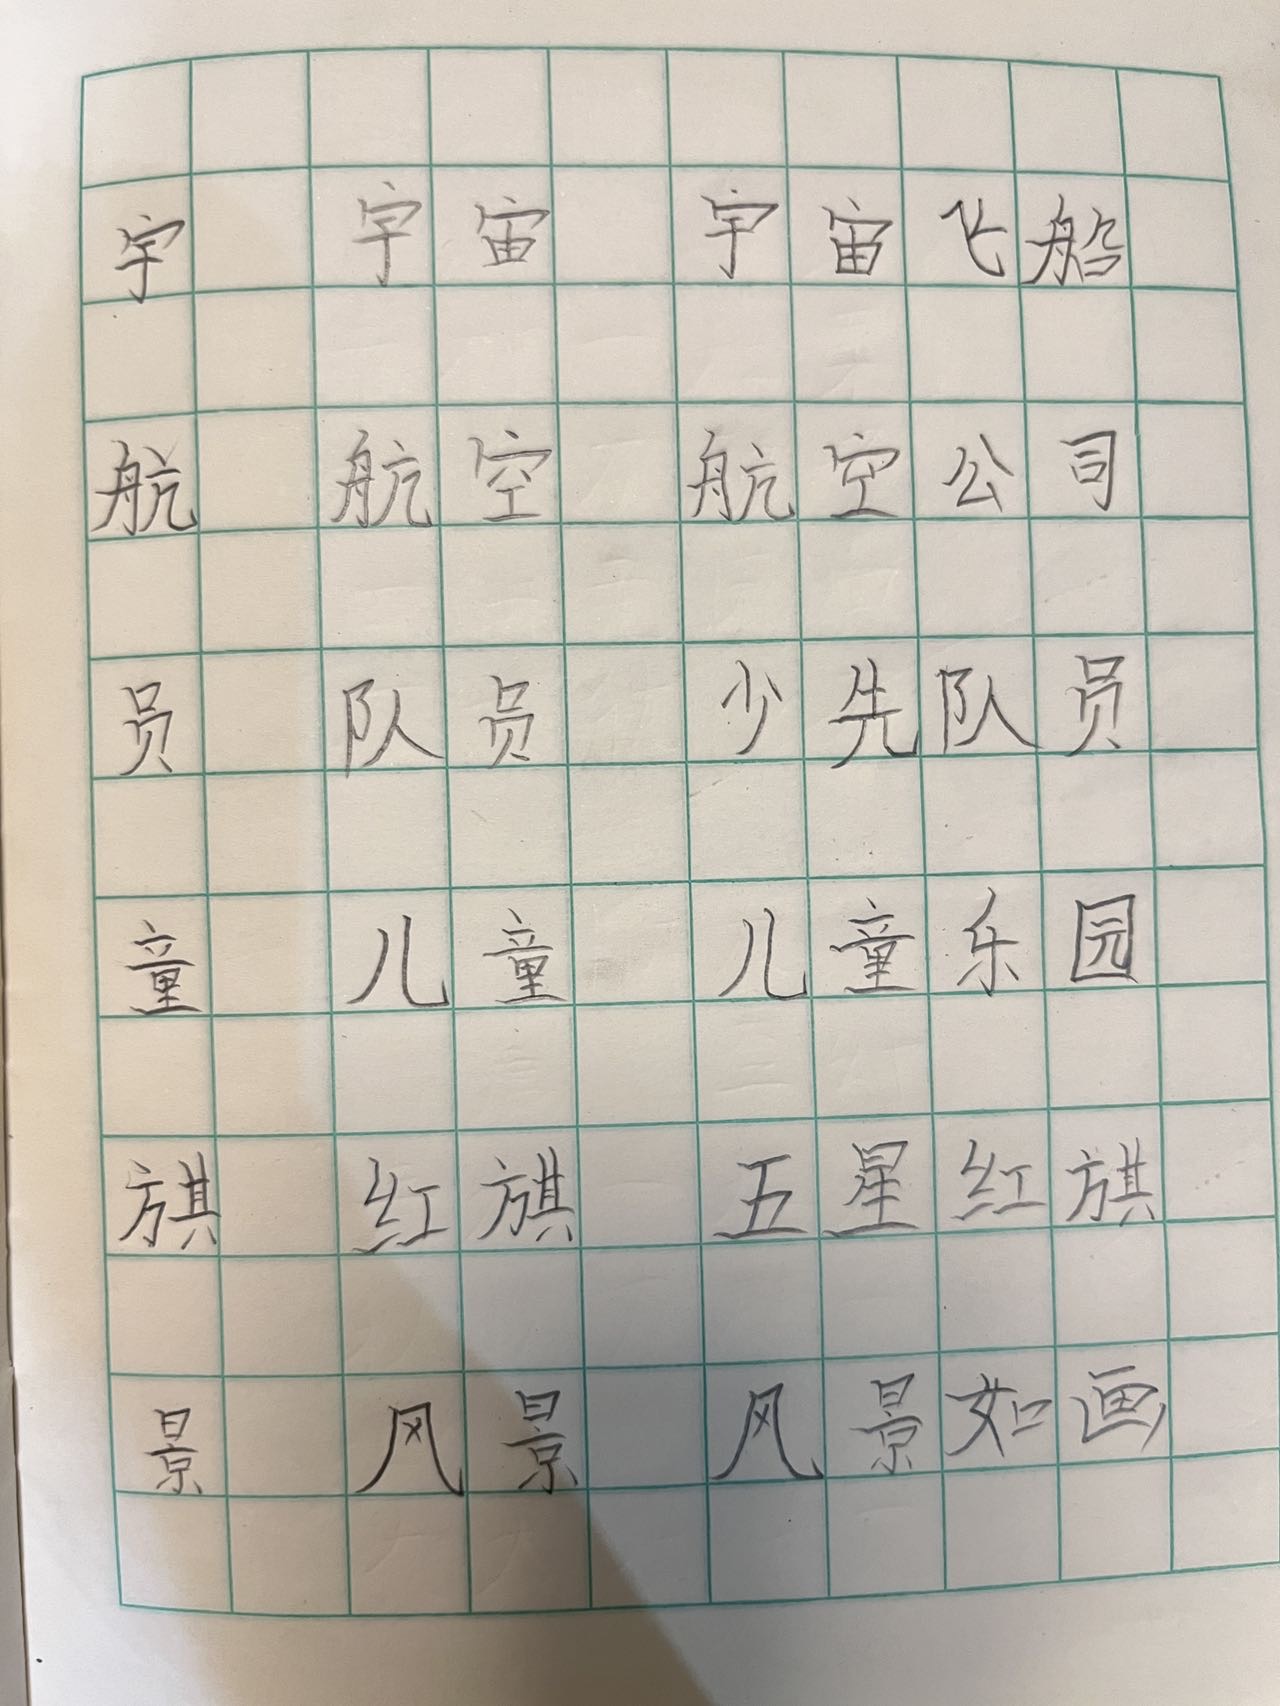 宇 宇宙 宇宙飞船
航 航空 航空公司
员 队员 少先队员
童 儿童 儿童乐园
旗 红旗 五星红旗
景 风景 风景如画